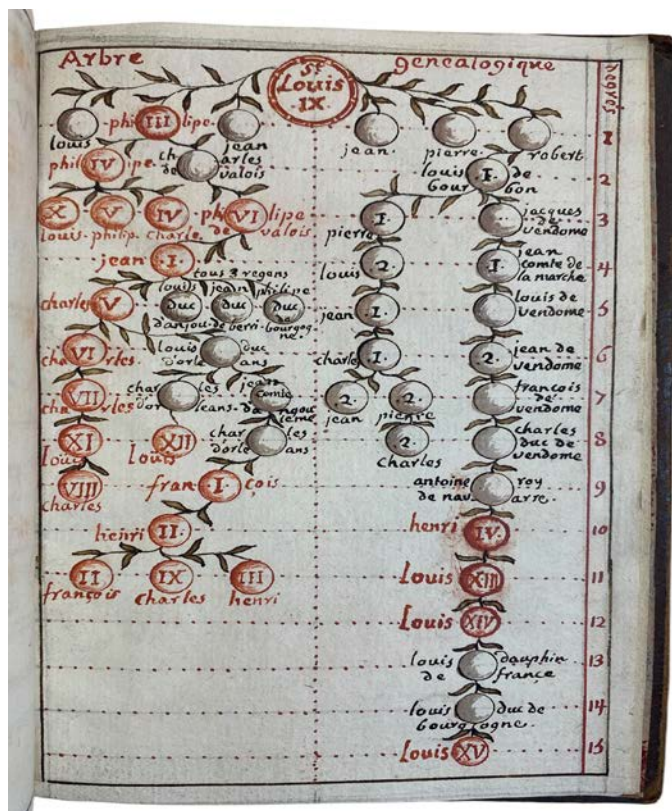 Arbre genealogique
Degrés
St
Louis
IX
louis philIIIlipe jean jean. pierre. robert 1
philIVipe. charles de valois louis I. de bourbon 2
X V IV philipe VI de valois pierre 1 jacques de vendome 3
louis. philip. charle.
jean I. louis 2 1 jean comte de la marche 4
tous 3 regens
charles V louis duc d'anjou. jean duc de berri. philipe duc de bourgogne. jean 1 louis de vendome 5
VI charles. louis duc d'orleans charle 1 2 jean de vendome 6
VII charles charles d'orleans. jean comte d'angouleme 2 jean 2 pierre françois de vendome 7
XI louis XII louis charles d'orleans 2 charles charles duc de vendome 8
VIII charles franI.çois antoine roy de navarre 9
henri II. henri IV. 10
II françois IX charles III henri Louis XIII 11
Louis XIV 12
louis dauphin de france 13
louis duc de bourgogne. 14
Louis XV 15